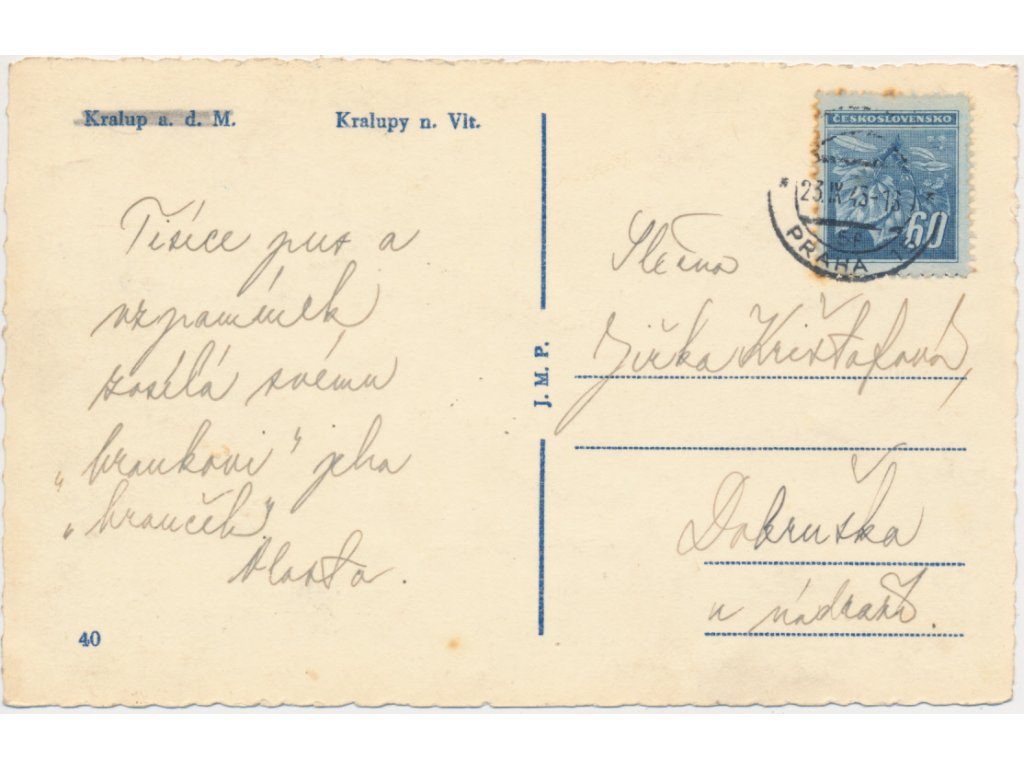 Kralup a. d. M. Kralupy n. Vlt.
Tisíce pus a
vzpomínek
zasílá svému
„broukovi" jeho
„brouček"
Vlasta.
40
J. M. P.
ČESKOSLOVENSKO
60
23.IX.45-18
PRAHA
Slečna
Jiřka Krištofová,
Dobruška
u nádraží.